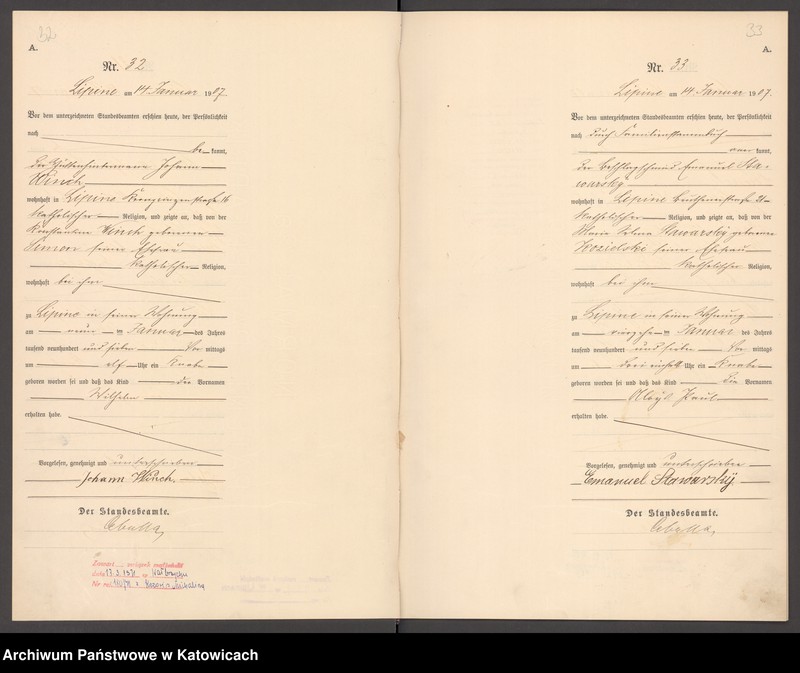 32
A.
Nr. 32
Lipine am 14. Januar 1907.
Vor dem unterzeichneten Standesbeamten erschien heute, der Persönlichkeit
nach
be kannt,
der Johann
Winch
wohnhaft in Lipine 16
katholischer Religion, und zeigte an, daß von der
Winch geborenen
seiner Ehefrau
katholischer Religion,
wohnhaft bei ihm
zu Lipine in seiner Wohnung
am neun ten Januar des Jahres
tausend neunhundert und sieben Vor mittags
um elf Uhr ein Knabe
geboren worden sei und daß das Kind die Vornamen
Wilhelm
erhalten habe.
Vorgelesen, genehmigt und unterschrieben
Johann Winch.
Der Standesbeamte.
13.2.1971
33
A.
Nr. 33
Lipine am 14. Januar 1907.
Vor dem unterzeichneten Standesbeamten erschien heute, der Persönlichkeit
nach durch Familienstammbuch
kannt,
der Emanuel Sta-
warsky
wohnhaft in Lipine Beuthenerstraße 21
katholischer Religion, und zeigte an, daß von der
Maria Stawarsky geborenen
Kozielski seiner Ehefrau
katholischer Religion,
wohnhaft bei ihm
zu Lipine in seiner Wohnung
am vierzehn ten Januar des Jahres
tausend neunhundert und sieben Vor mittags
um drei einhalb Uhr ein Knabe
geboren worden sei und daß das Kind die Vornamen
Paul
erhalten habe.
Vorgelesen, genehmigt und unterschrieben
Emanuel Stawarský
Der Standesbeamte.
Archiwum Państwowe w Katowicach